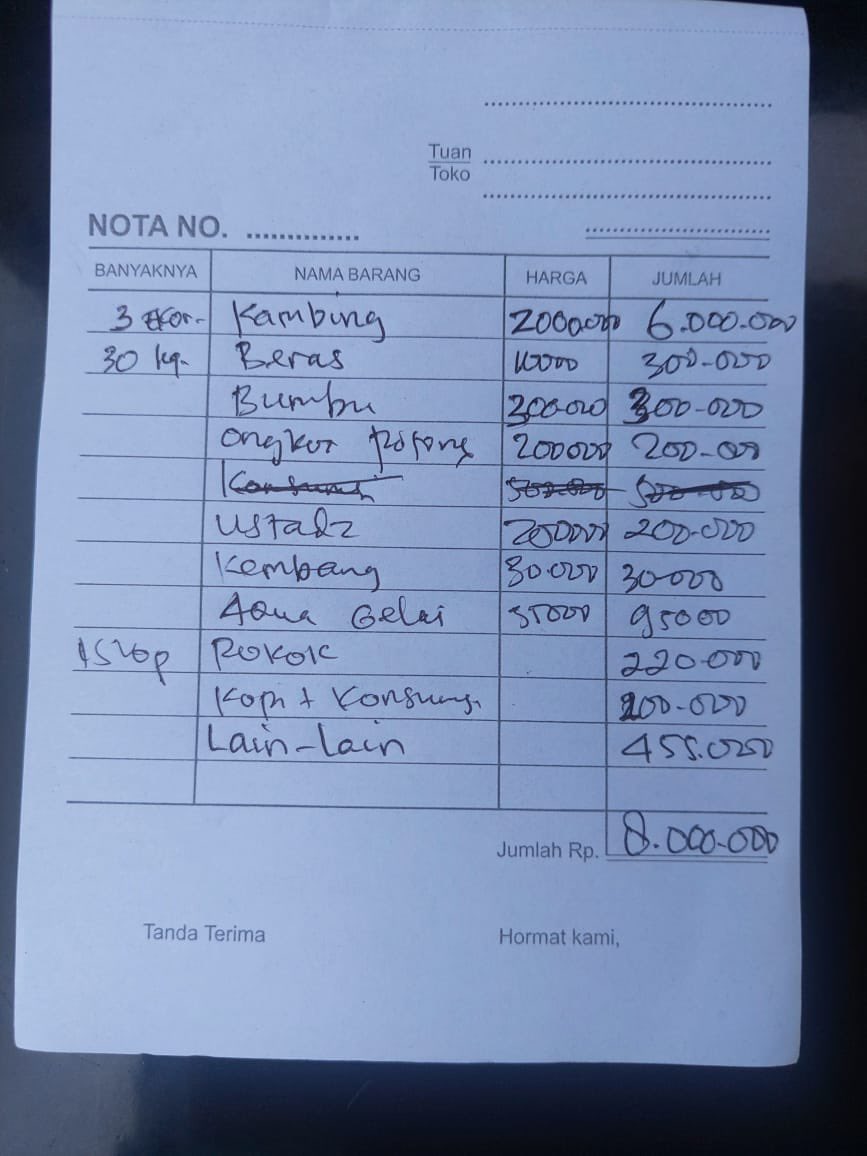 Tuan
Toko
NOTA NO.
BANYAKNYA NAMA BARANG HARGA JUMLAH
3 Ekor- Kambing 2000.000 6.000.000
30 kg- Beras 10000 300-000
Bumbu 300.000 300-000
ongkos potong 200000 200-000
Konsumsi 500.000 500-000
Ustadz 200000 200-000
Kembang 30.000 30.000
Aqua Gelas 95000
1 Slop ROKOK 220-000
Kopi + Konsumsi 200-000
Lain-Lain 455.000
Jumlah Rp. 8.000-000
Tanda Terima Hormat kami,